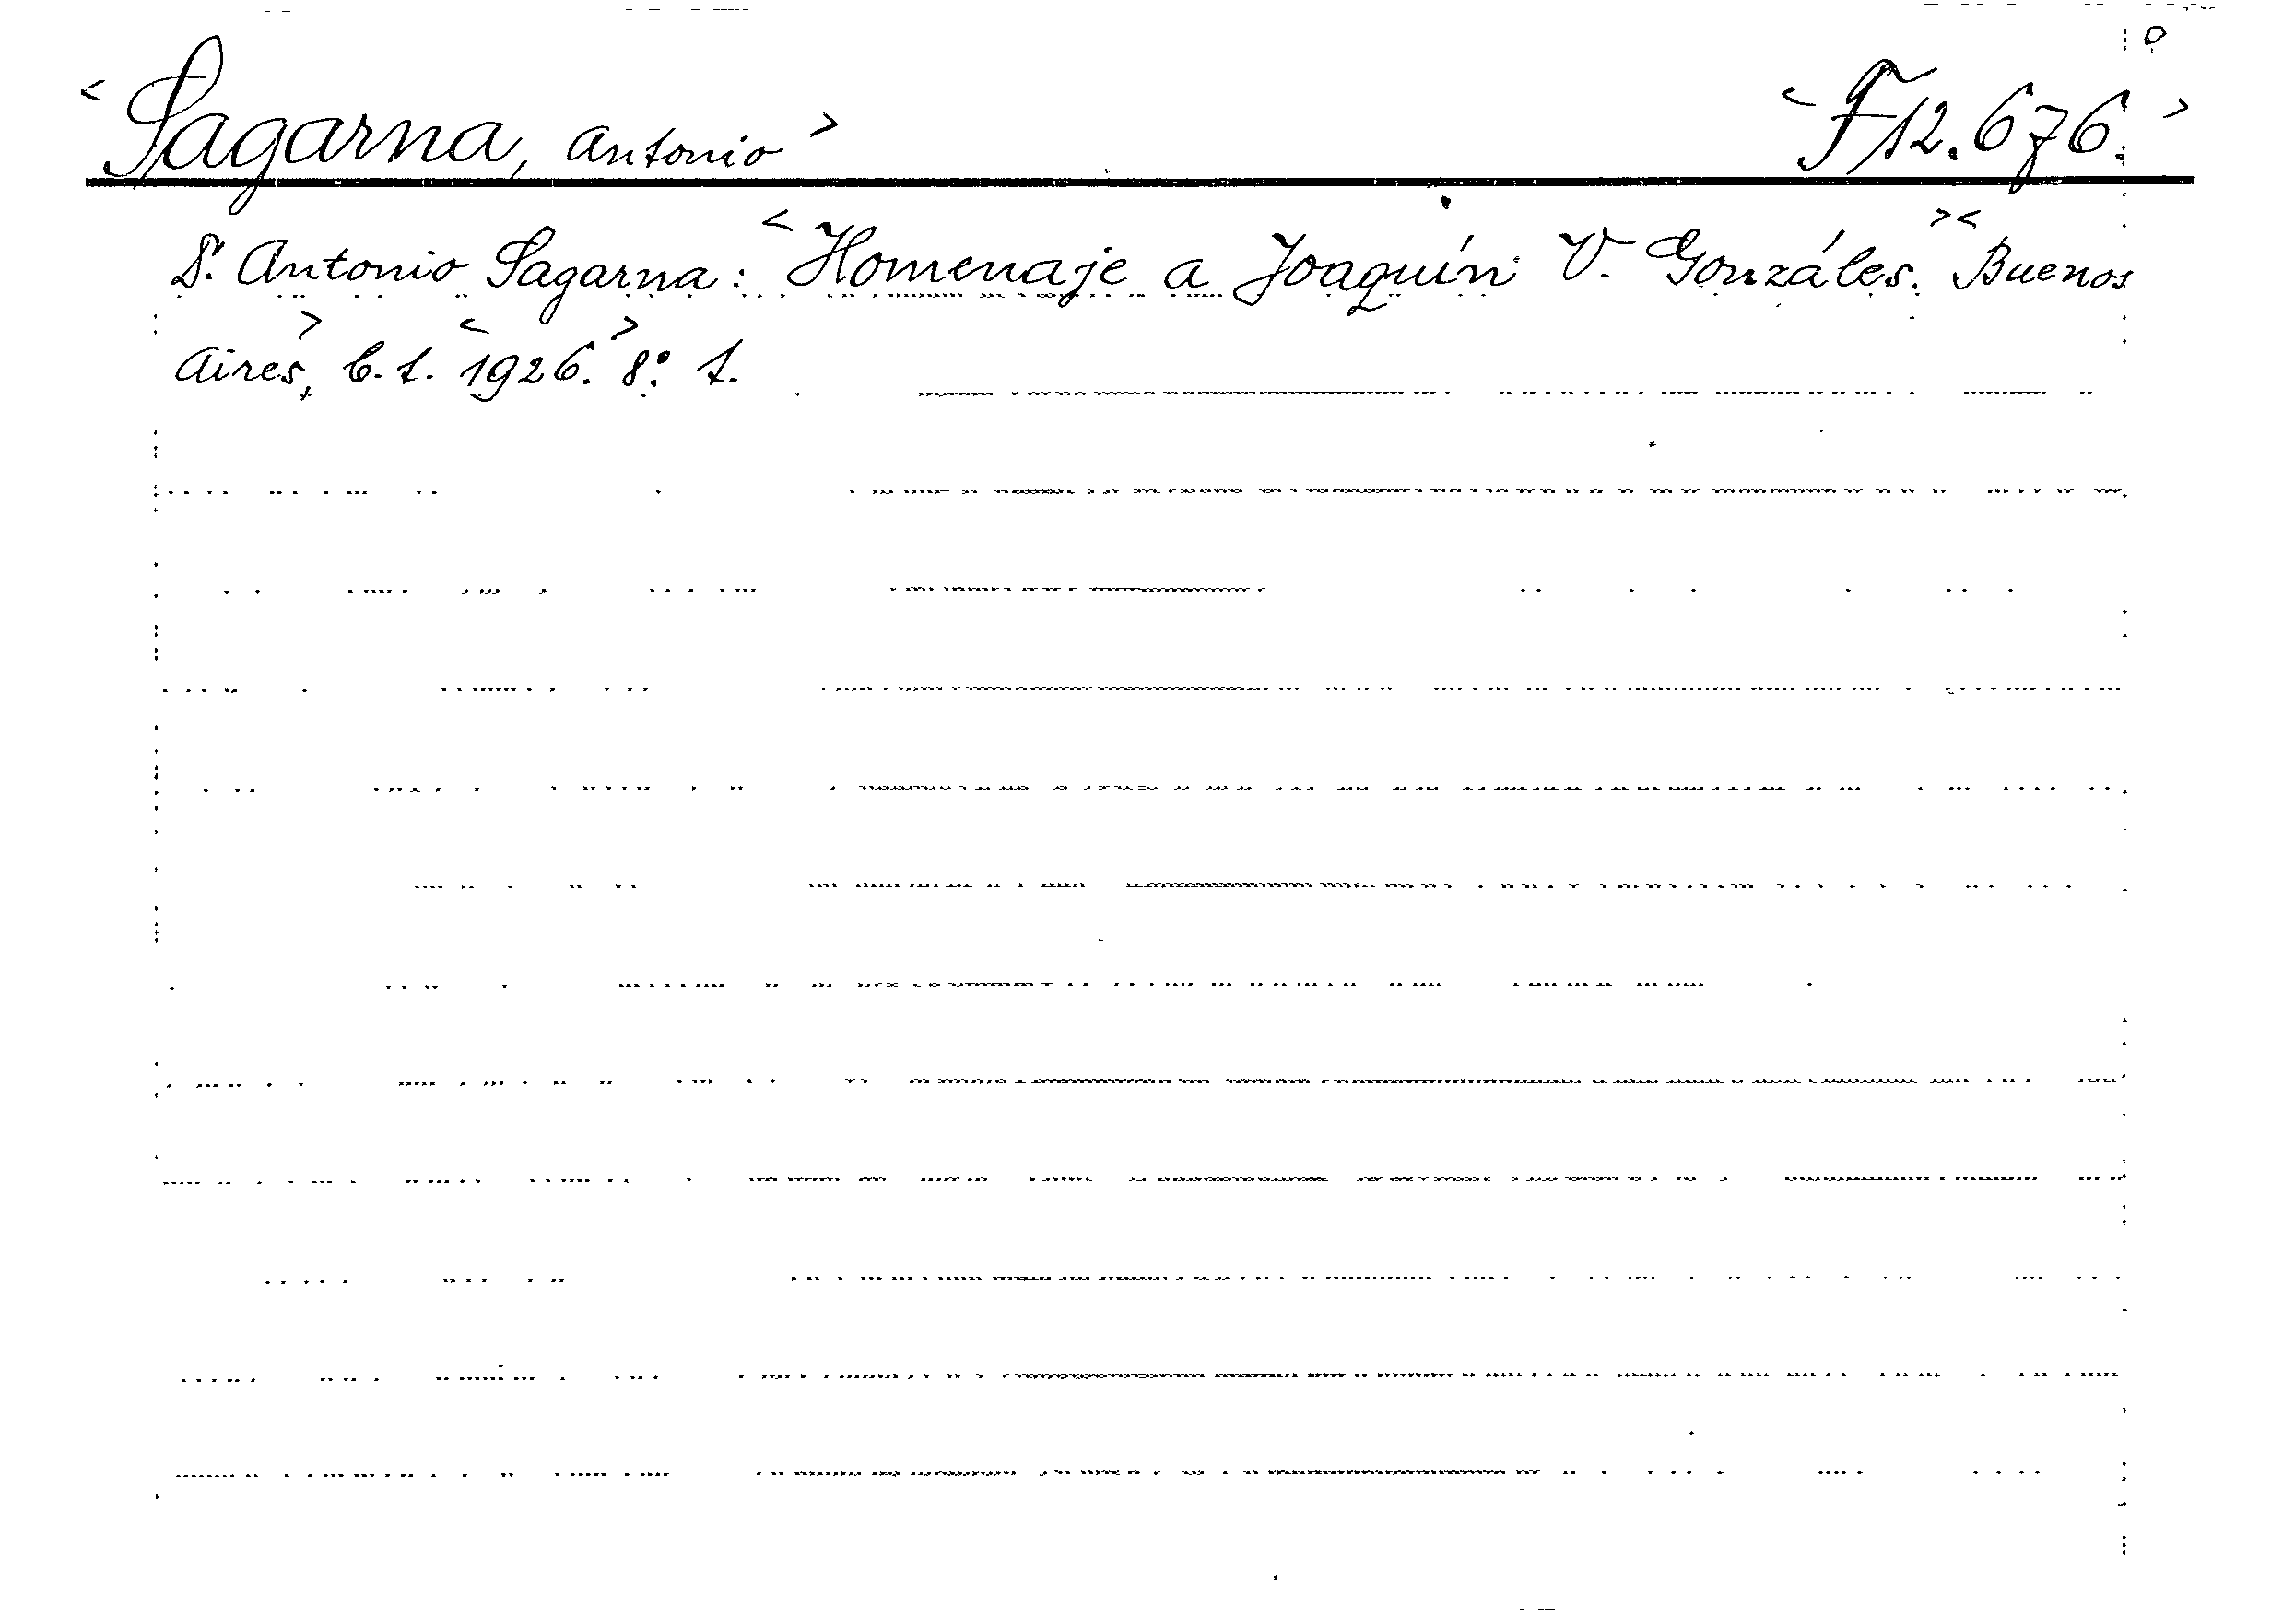 <Sagarna, Antonio> <F12.676.>
Dr. Antonio Sagarna: <Homenaje a Joaquín V. Gonzáles.>< Buenos
Aires>, <1926.> 8º.